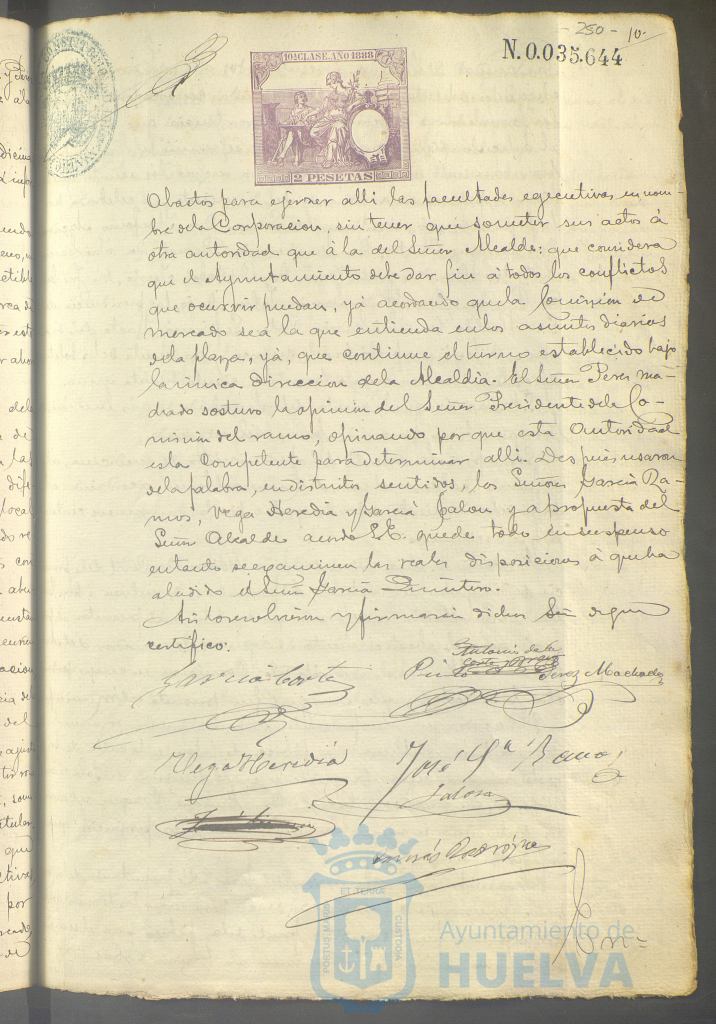 - 250 - 10.
N.0.035.644
10ª CLASE. AÑO 1888
2 PESETAS
Abastos para ejercer alli las facultades egecutivas en nom-
bre de la Corporacion, sin tener que someter sus actos á
otra autoridad que á la del Señor Alcalde: que considera
que el Ayuntamiento debe dar fin á todos los conflictos
que ocurrir puedan, yá acordando que la Comision de
mercado sea la que entienda en los asuntos diarios
de la plaza, yá, que continue el turno establecido bajo
la unica direccion de la Alcaldia. El Señor Perez Ma-
chado sostuvo la opinion del Señor Presidente de la Co-
mision del ramo, opinando por que esta Autoridad
es la competente para determinar alli. Despues usaron
de la palabra, en distintos sentidos, los Señores Garcia Ra-
mos, Vega Heredia y Garcia Jalon y a propuesta del
Señor Alcalde acordó S.E. quede todo en suspenso
en tanto se examinen las reales disposiciones á que ha
aludido el Señor Garcia Quintero.
Asi lo resolvieron y firmarán dichos Sres de que
certifico.
Garcia Cortes
Antonio de la
Corte
Perez Machado
Vega Heredia
José Gª Ramos
Jalon
Con-
PORTUS MARIS
ET TERRÆ
CUSTODIA
Ayuntamiento de
HUELVA